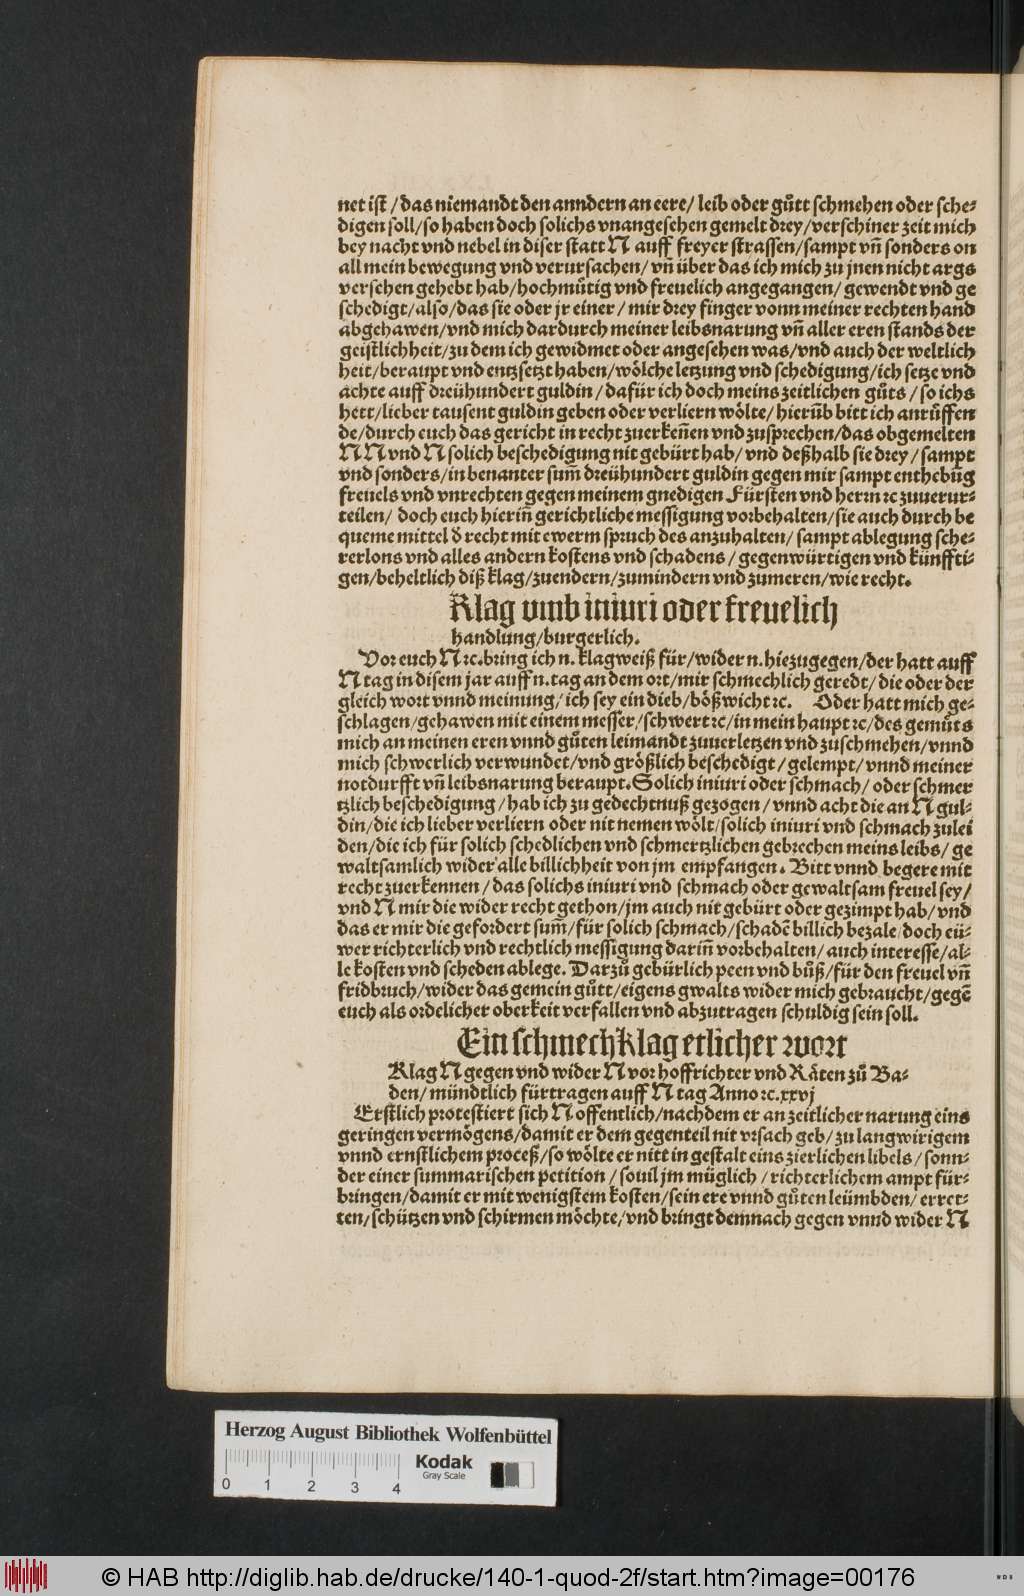 net ist / das niemandt den anndern an eere / leib oder gůtt schmehen oder sche⸗
digen soll/so haben doch solichs vnangesehen gemelt drey/verschiner zeit mich
bey nacht vnd nebel in diser statt N auff freyer strassen/sampt vñ sonders on
all mein bewegung vnd verursachen/ vñ über das ich mich zu jnen nicht args
versehen gehebt hab/hochmůtig vnd freuelich angegangen/ gewendt vnd ge
schedigt/also/das sie oder jr einer / mir drey finger vonn meiner rechten hand
abgehawen/vnd mich dardurch meiner leibsnarung vñ aller eren stands der
geistlichheit/zu dem ich gewidmet oder angesehen was/vnd auch der weltlich
heit/beraupt vnd entzsetzt haben/wölche letzung vnd schedigung/ich setze vnd
achte auff dreühundert guldin / dafür ich doch meins zeitlichen gůts / so ichs
hett/lieber tausent guldin geben oder verliern wölte/hierũb bitt ich anrůffen
de/durch euch das gericht in recht zuerkeñen vnd zusprechen/das obgemelten
N N vnd N solich beschedigung nit gebürt hab/ vnd deßhalb sie drey / sampt
vnd sonders/in benanter sum̃ dreühundert guldin gegen mir sampt enthebũg
freuels vnd vnrechten gegen meinem gnedigen Fürsten vnd herrn ꝛc zuuerur⸗
teilen/ doch euch hieriñ gerichtliche messigung vorbehalten/sie auch durch be
queme mittel d̕ recht mit ewerm spruch des anzuhalten/ sampt ablegung sche⸗
rerlons vnd alles andern kostens vnd schadens / gegenwürtigen vnd künffti⸗
gen/beheltlich diß klag/zuendern/zumindern vnd zumeren/wie recht.
Klag vmb iniuri oder freuelich
handlung/burgerlich.
Vor euch N ꝛc.bring ich n. klagweiß für/wider n.hiezugegen/der hatt auff
N tag in disem jar auff n.tag an dem ort/mir schmechlich geredt/ die oder der
gleich wort vnnd meinung/ ich sey ein dieb/bößwicht ꝛc. Oder hatt mich ge⸗
schlagen/gehawen mit einem messer/schwert ꝛc/in mein haupt ꝛc/des gemůts
mich an meinen eren vnnd gůten leimandt zuuerletzen vnd zuschmehen/vnnd
mich schwerlich verwundet/vnd größlich beschedigt/ gelempt/ vnnd meiner
notdurfft vñ leibsnarung beraupt.Solich iniuri oder schmach/ oder schmer
tzlich beschedigung / hab ich zu gedechtnuß gezogen / vnnd acht die an N gul⸗
din/die ich lieber verliern oder nit nemen wölt/solich iniuri vnd schmach zulei
den/die ich für solich schedlichen vnd schmertzlichen gebrechen meins leibs/ ge
waltsamlich wider alle billichheit von jm empfangen. Bitt vnnd begere mit
recht zuerkennen / das solichs iniuri vnd schmach oder gewaltsam freuel sey/
vnd N mir die wider recht gethon/jm auch nit gebürt oder gezimpt hab/ vnd
das er mir die gefordert sum̃/für solich schmach/schadẽ billich bezale/doch eü⸗
wer richterlich vnd rechtlich messigung dariñ vorbehalten/ auch interesse/al⸗
le kosten vnd scheden ablege. Darzů gebürlich peen vnd bůß/für den freuel vñ
fridbruch/wider das gemein gůtt/eigens gwalts wider mich gebraucht/gegẽ
euch als ordelicher oberkeit verfallen vnd abzutragen schuldig sein soll.
Ein schmechklag etlicher wort
Klag N gegen vnd wider N vor hoffrichter vnd Räten zů Ba⸗
den/ mündtlich fürtragen auff N tag Anno ꝛc.xxvj
Erstlich protestiert sich N offentlich/nachdem er an zeitlicher narung eins
geringen vermögens/damit er dem gegenteil nit vrsach geb/ zu langwirigem
vnnd ernstlichem proceß/so wölte er nitt in gestalt eins zierlichen libels / sonn⸗
der einer summarischen petition / souil jm müglich / richterlichem ampt für⸗
bringen/damit er mit wenigstem kosten/sein ere vnnd gůten leümbden/ erret⸗
ten/schützen vnd schirmen möchte/vnd bringt demnach gegen vnnd wider N
Herzog August Bibliothek Wolfenbüttel
Kodak
Gray Scale
0 1 2 3 4
© HAB http://diglib.hab.de/drucke/140-1-quod-2f/start.htm?image=00176